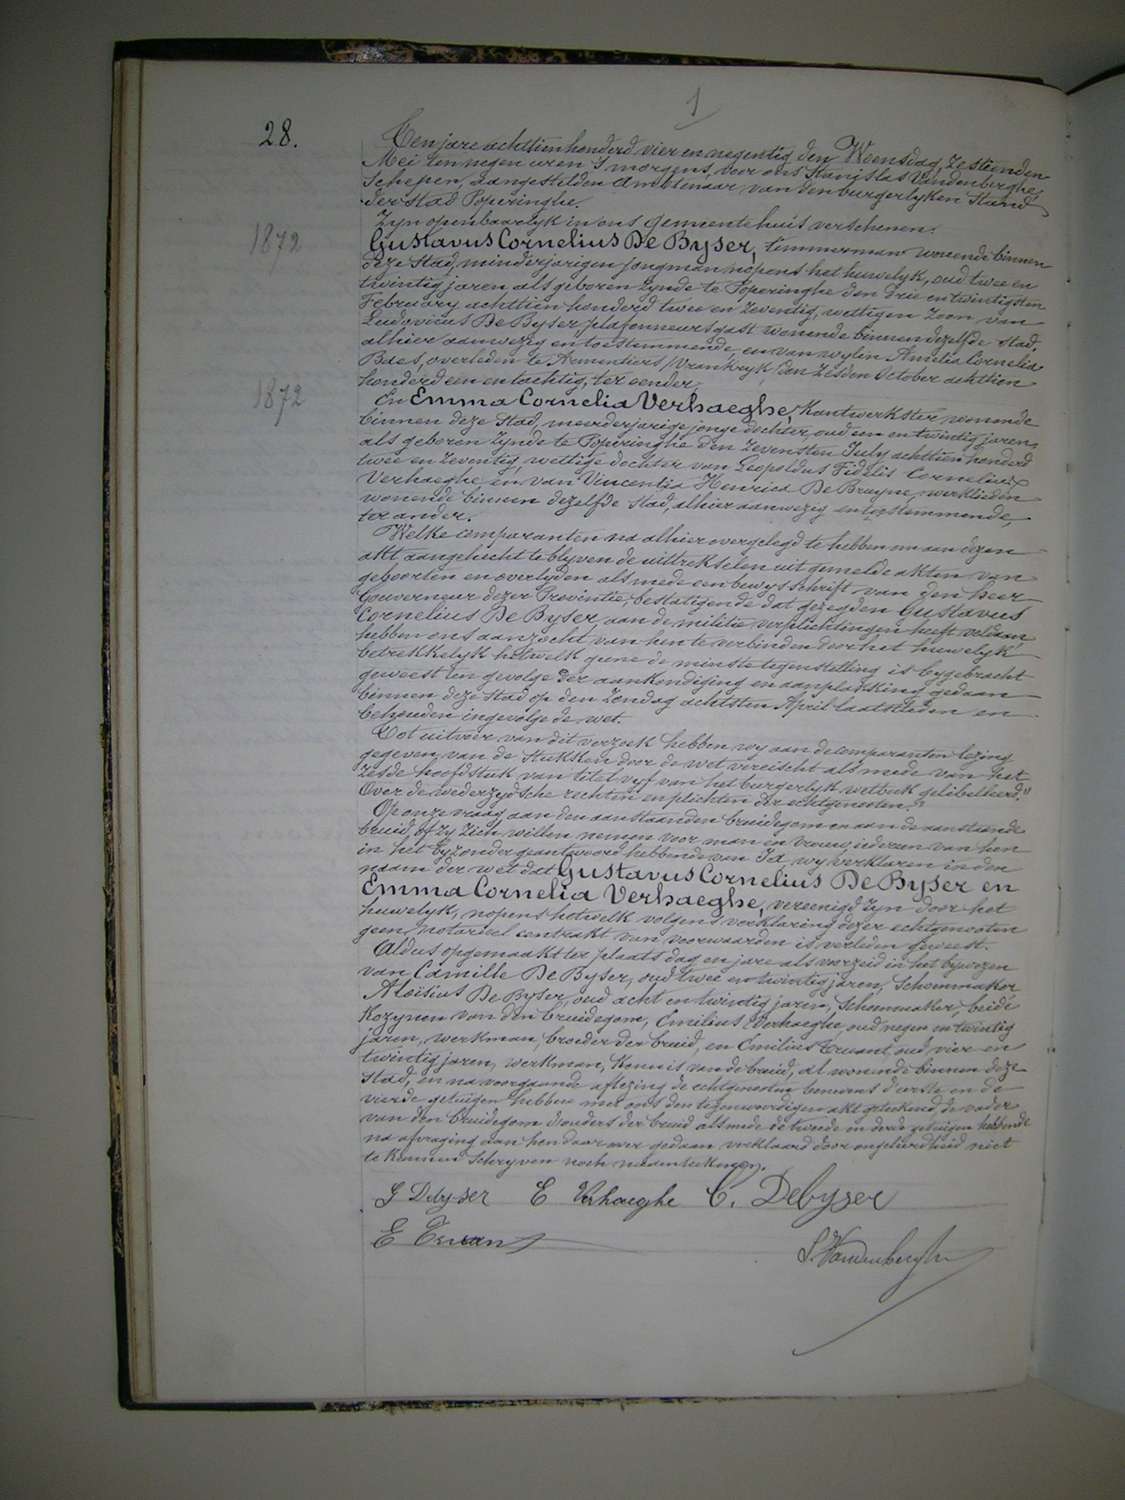 1
28.
Ten jare achttien honderd vier en negentig den Woensdag, zestienden
Mei ten negen uren 's morgens, voor ons Stanislas Vandenberghe,
Schepen, aangestelden ambtenaar van den burgerlyken Stand
der stad Poperinghe.
Zyn openbaarlyk in ons gemeentehuis verschenen:
1872
Gustavus Cornelius De Byser, timmerman wonende binnen
deze Stad, minderjarigen jongman nopens het huwelyk, oud twee en
twintig jaren als geboren zynde te Poperinghe den drie en twintigsten
February achttien honderd twee en zeventig, wettigen zoon van
Ludovicus De Byser plafonneursgast wonende binnen dezelfde stad
alhier aanwezig en toestemmende, en van wylen Amelia Cornelia
Baes, overleden te Armentiers /Vrankryk/ den zesden October achttien
honderd een en tachtig, ter eender,
1872
En Emma Cornelia Verhaeghe, Kantwerkster wonende
binnen deze Stad, meerderjarige jonge dochter, oud een en twintig jaren,
als geboren zynde te Poperinghe den zevensten July achttien honderd
twee en zeventig, wettige dochter van Leopoldus Fidelis Cornelius
Verhaeghe en van Vincentia Henrica De Bruyne, werklieden
wonende binnen dezelfde Stad, alhier aanwezig en toestemmende,
ter ander.
Welke comparanten na alhier overgelegd te hebben om aan dezen
akt aangehecht te blyven de uittrekselen uit gemelde akten van
geboorten en overlyden alsmede een bewysschrift van den heer
Gouverneur dezer Provintie, bestatigende dat gezegden Gustavus
Cornelius De Byser, aan de militie verplichtingen heeft voldaan
hebben ons aanzocht van hen te verbinden door het huwelyk
betrekkelyk hetwelk geene de minste tegenstelling is bygebracht
geweest ten gevolge der aankondiging en aanplakking gedaan
binnen deze Stad op den Zondag achtsten April laatstleden en
behouden ingevolge de wet.
Tot uitvoer van dit verzoek hebben wy aan de comparanten lezing
gegeven van de stukken door de wet vereischt alsmede van het
zesde hoofdstuk van titel vyf van het burgerlyk wetboek gelibelleerd "
Over de wederzydsche rechten en plichten der echtgenooten."
Op onze vraag aan den aanstaanden bruidegom en aan de aanstaande
bruid, of zy zich willen nemen voor man en vrouw, iedereen van hen
in het byzonder geantwoord hebbende van Ja, wy verklaren in den
naam der wet dat Gustavus Cornelius De Byser en
Emma Cornelia Verhaeghe, vereenigd zyn door het
huwelyk, nopens hetwelk volgens verklaring dezer echtgenooten
geen notarieel contrakt van voorwaarden is verleden geweest.
Aldus opgemaakt ter plaats dag en jare als voorzeid in het bywezen
van Camille De Byser, oud twee en twintig jaren, Schoenmaker
Aloisius De Byser, oud acht en twintig jaren, Schoenmaker, beide
Kozynen van den bruidegom, Emilius Verhaeghe, oud negen en twintig
jaren, werkman, broeder der bruid, en Emilius Truant, oud vier en
twintig jaren, werkman, Kennis van de bruid, al wonende binnen deze
Stad, en na voorgaande aflezing de echtgenooten benevens d'eerste en de
vierde getuigen hebben met ons den tegenwoordigen akt geteekend, de vader
van den bruidegom d'ouders der bruid alsmede de tweede en derde getuigen hebbende
na afvraging aan hen daar over gedaan verklaard door ongeleerdheid niet
te kunnen schryven noch naamteekenen.
G Debyser E Verhaeghe C. Debyser
E Truant
S. Vandenberghe